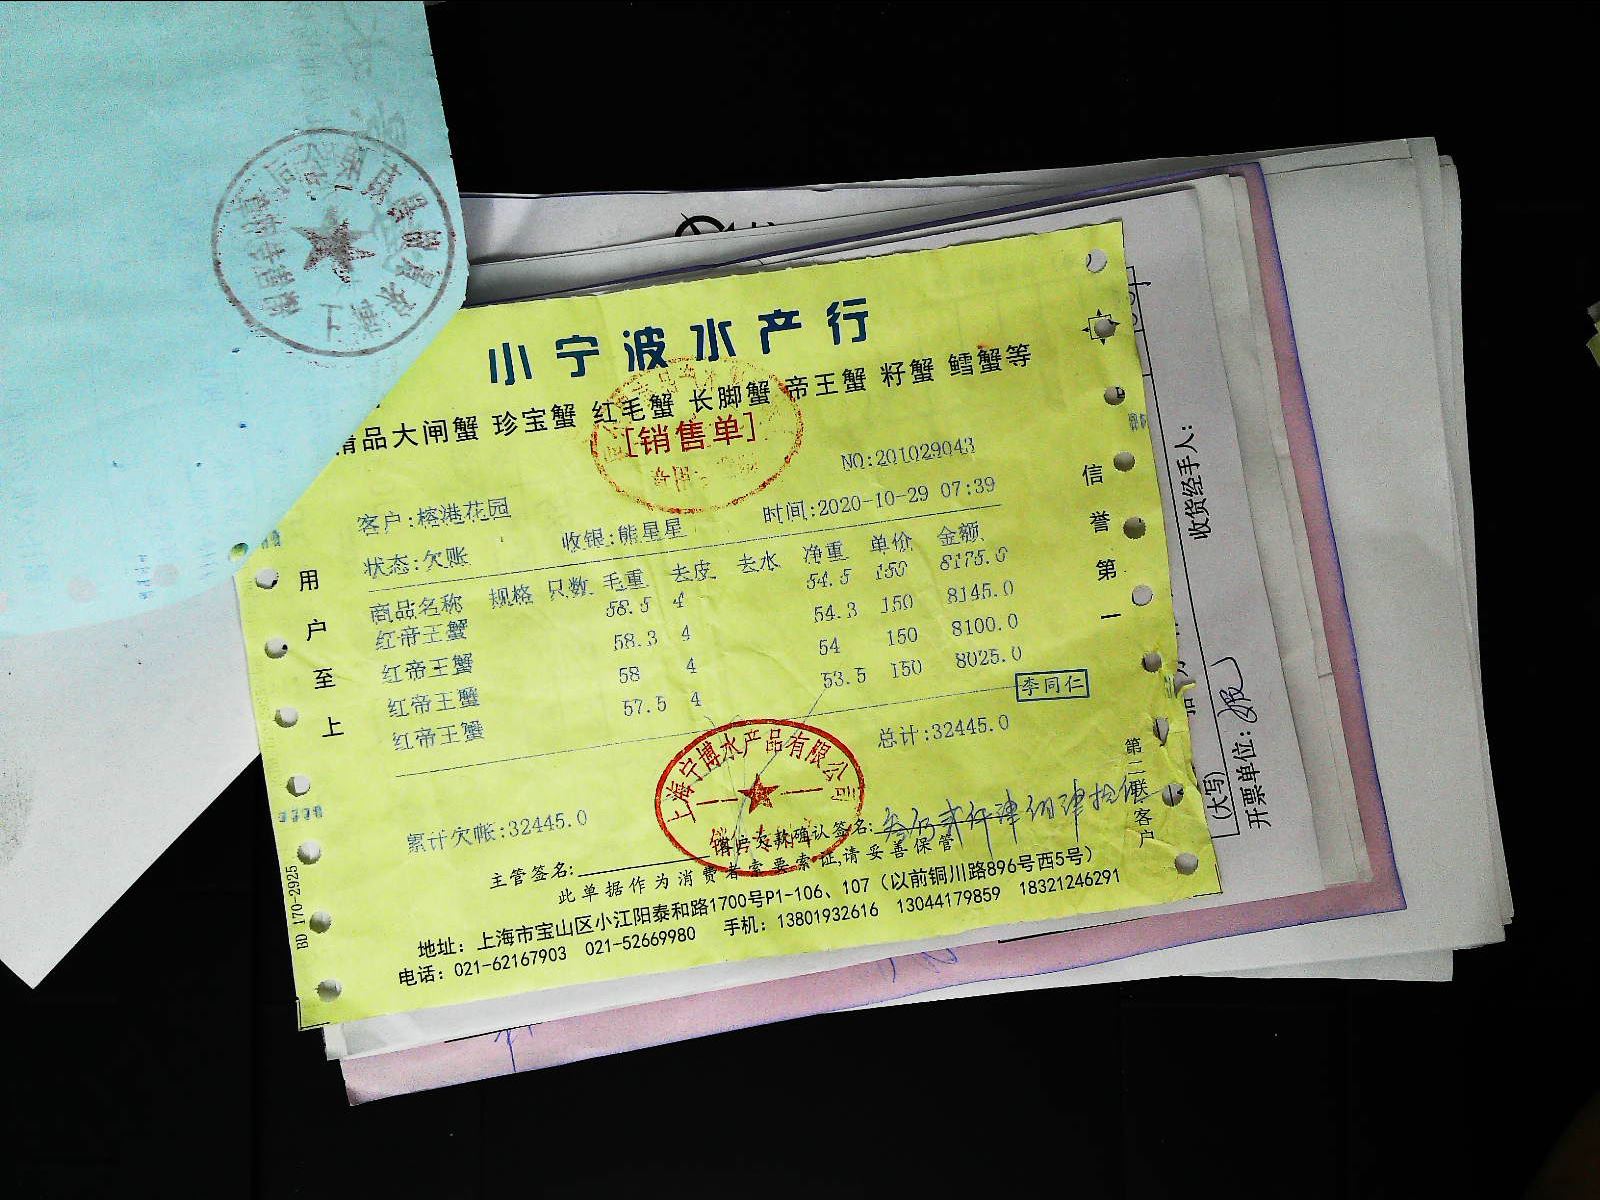 小宁波水产行
精品大闸蟹 珍宝蟹 红毛蟹 长脚蟹 帝王蟹 籽蟹 鳕蟹等
[销售单]
NO:201029043
客户:榕港花园
时间:2020-10-29 07:39
状态:欠账
收银:熊星星
商品名称 规格 只数 毛重 去皮 去水 净重 单价 金额
红帝王蟹 58.5 4 54.5 150 8175.0
红帝王蟹 58.3 4 54.3 150 8145.0
红帝王蟹 58 4 54 150 8100.0
红帝王蟹 57.5 4 53.5 150 8025.0
李同仁
总计:32445.0
累计欠帐:32445.0
上海宁博水产品有限公司
主管签名:
客户欠款确认签名:
此单据作为消费者索要索证,请妥善保管
地址：上海市宝山区小江阳泰和路1700号P1-106、107（以前铜川路896号西5号）
电话：021-62167903 021-52669980 手机：13801932616 13044179859 18321246291
用户至上
信誉第一
第二联客户
BD 170-2925
收货经手人：
(大写)
开票单位：